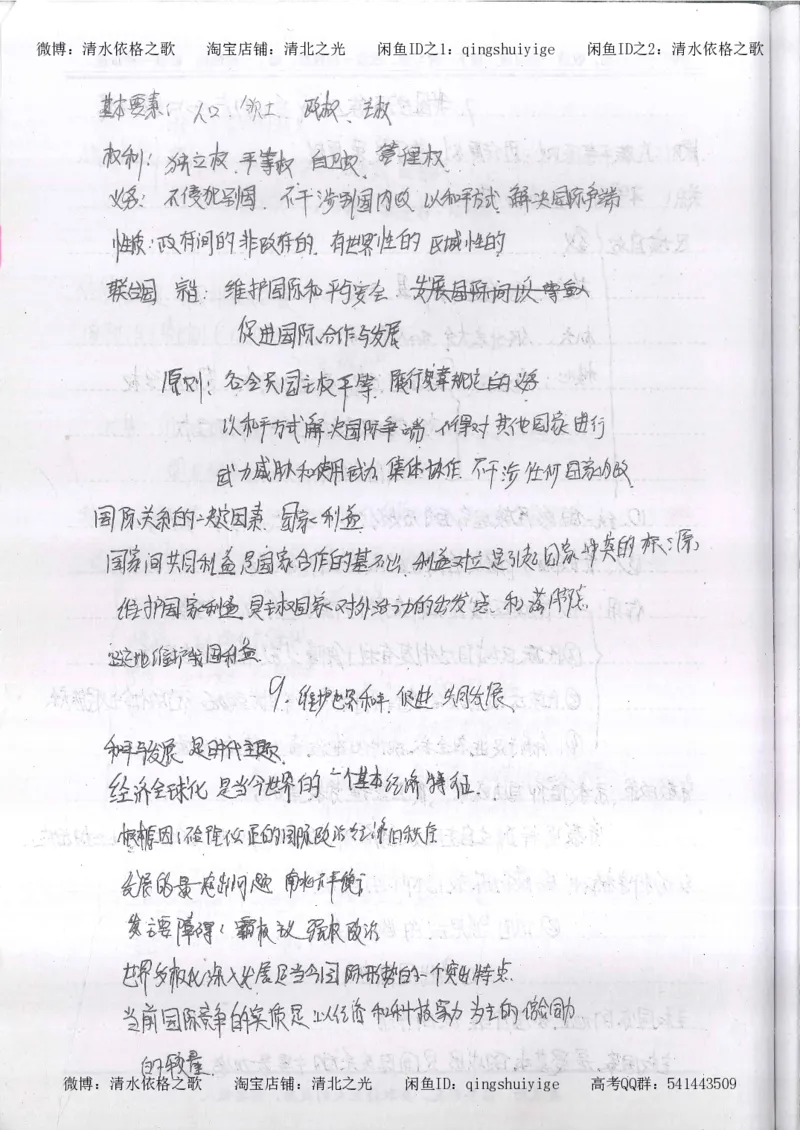 微博：清水依格之歌 淘宝店铺：清北之光 闲鱼ID之1：qingshuiyige 闲鱼ID之2：清水依格之歌
基本要素：人口、领土 政权、主权
权利：独立权 平等权 自卫权、管理权
义务：不侵犯别国、不干涉别国内政 以和平方式 解决国际争端
性质：政府间的 非政府的、有世界性的 区域性的
联合国 宗旨：维护国际和平与安全、发展国际间以
促进国际合作与发展
原则：各会员国主权平等、履行宪章规定的义务
以和平方式解决国际争端 不得对其他国家进行
武力威胁和使用武力 集体协作 不干涉任何国家内政
国际关系的决定因素：国家利益
国家间共同利益是国家合作的基础，利益对立是引起国家冲突的根源
维护国家利益是主权国家对外活动的出发点和落脚点
坚定地维护我国利益
9、维护世界和平 促进共同发展
和平与发展 是时代主题
经济全球化 是当今世界的一个基本经济特征
根本原因：不合理不公正的国际政治经济旧秩序
发展的最突出问题 南北不平衡
主要障碍：霸权主义 强权政治
世界多极化深入发展是当今国际形势的一个突出特点
当前国际竞争的实质是以经济和科技实力为主的综合国力
的较量
微博：清水依格之歌 淘宝店铺：清北之光 闲鱼ID：qingshuiyige 高考QQ群：541443509